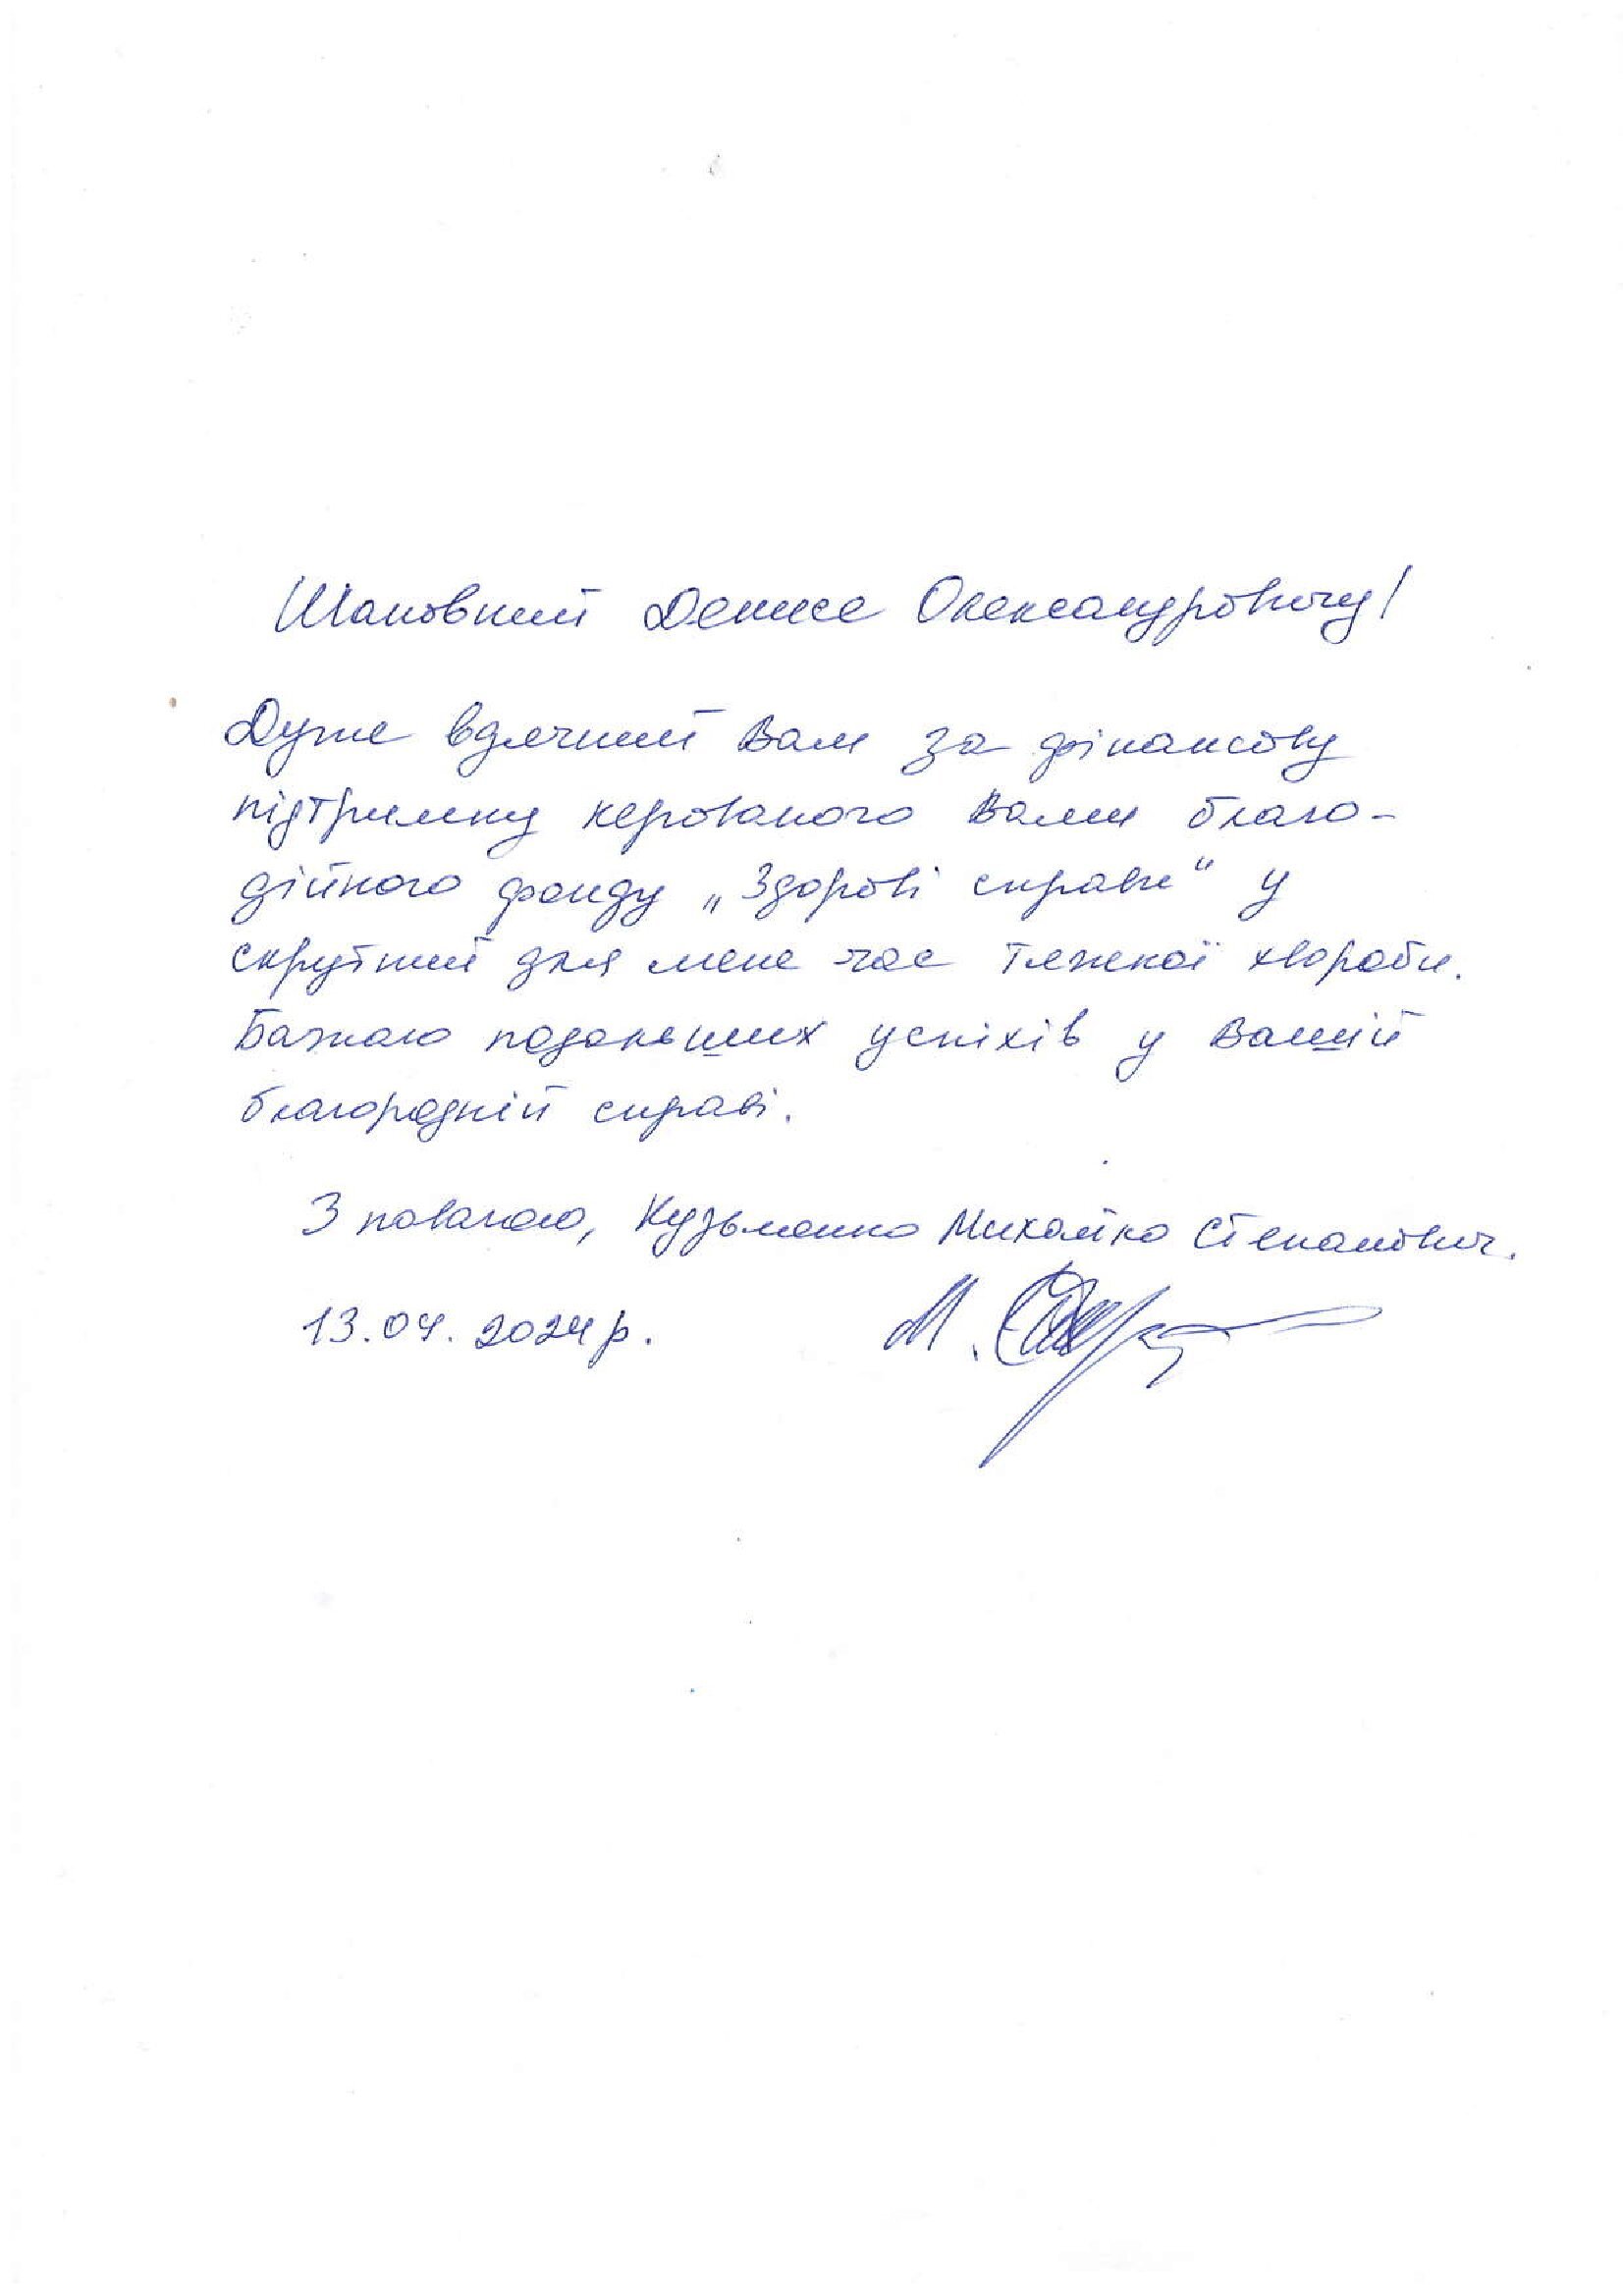 Шановний Денисе Олександровичу!
Дуже вдячний Вам за фінансову
підтримку керованого Вами благо-
дійного фонду „Здорові справи“ у
скрутний для мене час тяжкої хвороби.
Бажаю подальших успіхів у Вашій
благородній справі.
З повагою, Кузьменко Михайло Степанович.
13.04.2024р.